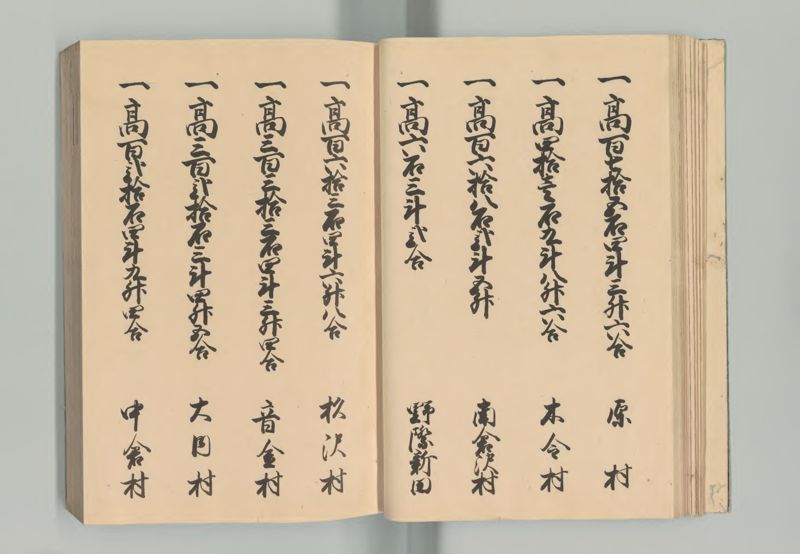 一高百七拾五石四斗三升六合 原村
一高四拾三石九斗八升六合 木令村
一高百六拾八石弐斗五升 南倉沢村
一高六石三斗弐合 野際新田
一高百六拾三石四斗六升八合 枩沢村
一高三百三拾三石四斗三升四合 音金村
一高三百弐拾石三斗四升五合 大内村
一高百弐拾石四斗九升四合 中倉村